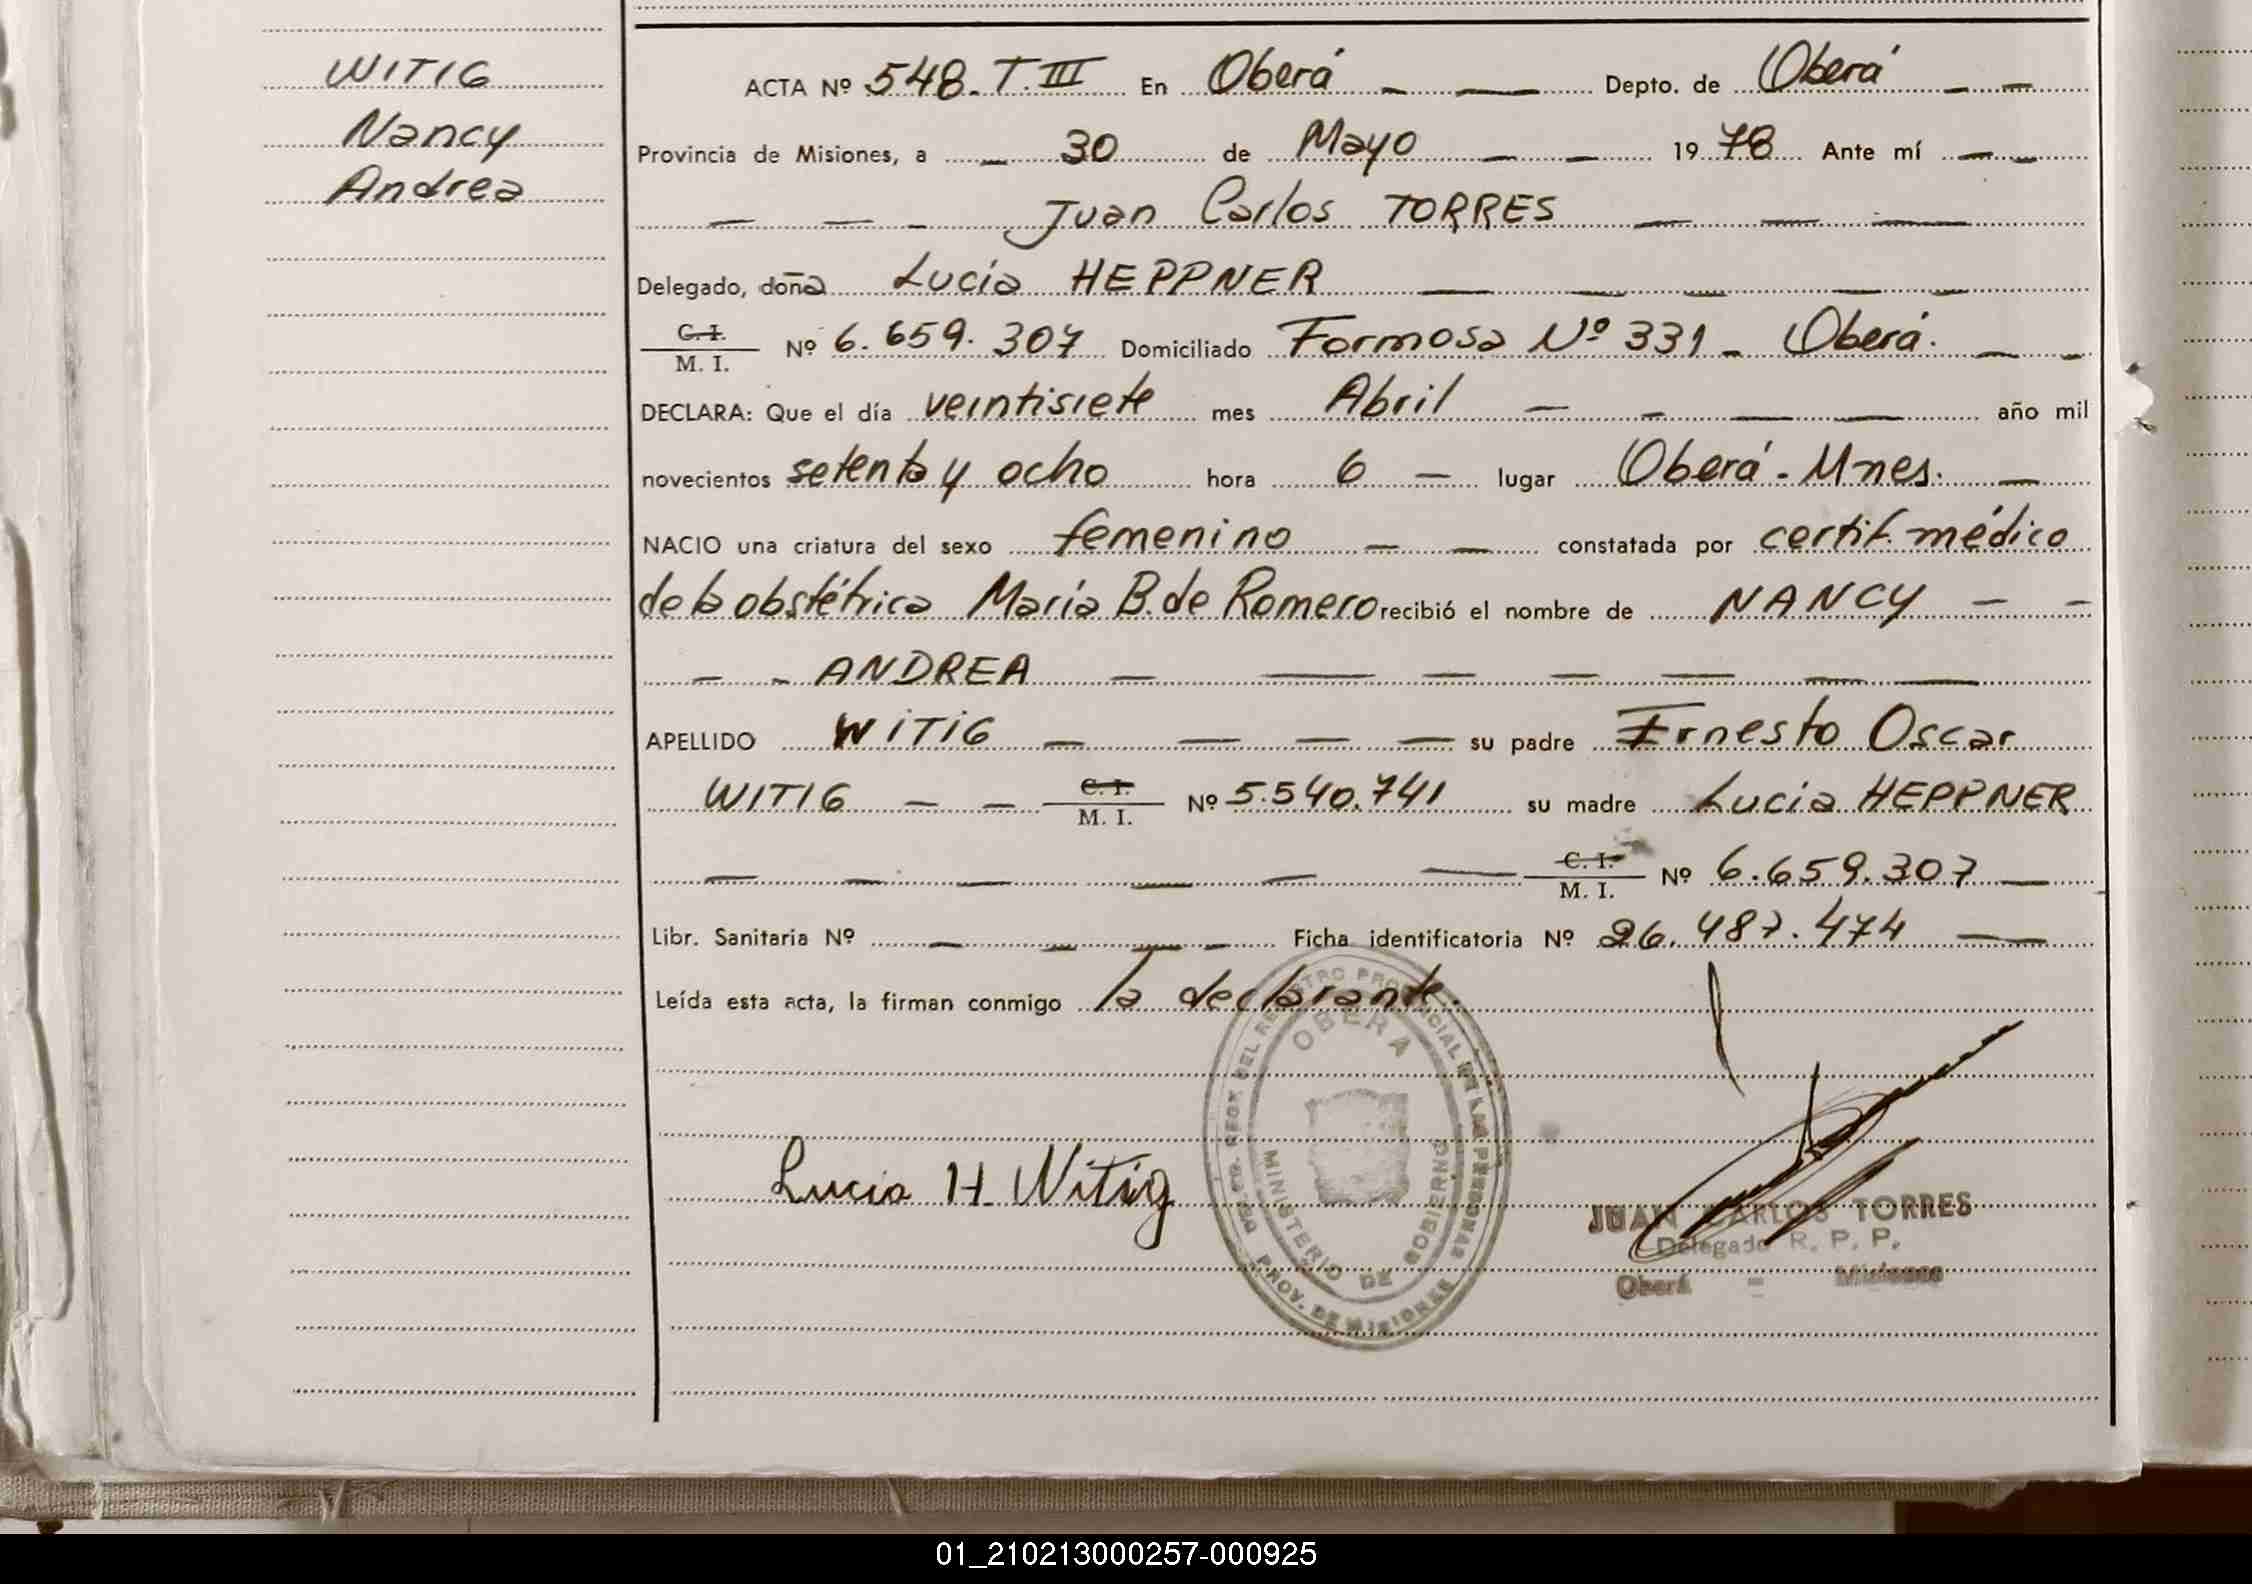 WITIG
Nancy
Andrea
ACTA Nº 548. T. III En Oberá Depto. de Oberá
Provincia de Misiones, a 30 de Mayo 1978 Ante mí
Juan Carlos TORRES
Delegado, doña Lucía HEPPNER
C. I.
M. I. Nº 6.659.307 Domiciliado Formosa Nº 331 - Oberá.
DECLARA: Que el día veintisiete mes Abril año mil
novecientos setenta y ocho hora 6 lugar Oberá - Mnes.
NACIO una criatura del sexo femenino constatada por certif. médico
de la obstétrica María B. de Romero recibió el nombre de NANCY
ANDREA
APELLIDO WITIG su padre Ernesto Oscar
WITIG C. I.
M. I. Nº 5.540.741 su madre Lucía HEPPNER
C. I.
M. I. Nº 6.659.307
Libr. Sanitaria Nº Ficha identificatoria Nº 26.487.474
Leída esta acta, la firman conmigo la declarante.
OBERA
MINISTERIO DE GOBIERNO
PROV. DE MISIONES
Lucia H. Witig
JUAN CARLOS TORRES
Delegado R. P. P.
Oberá - Misiones
01_210213000257-000925